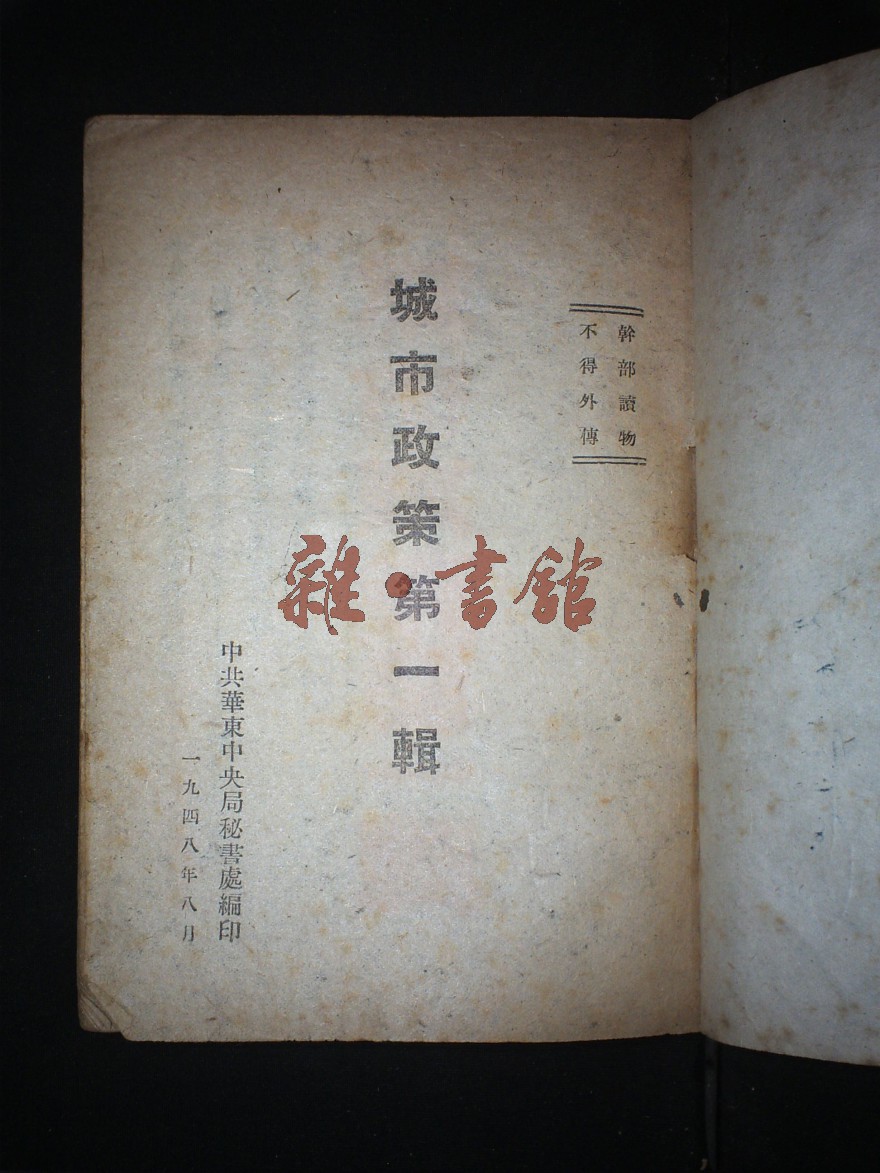 幹部讀物
不得外傳
城市政策第一輯
中共華東中央局秘書處編印
一九四八年八月
雜·書館